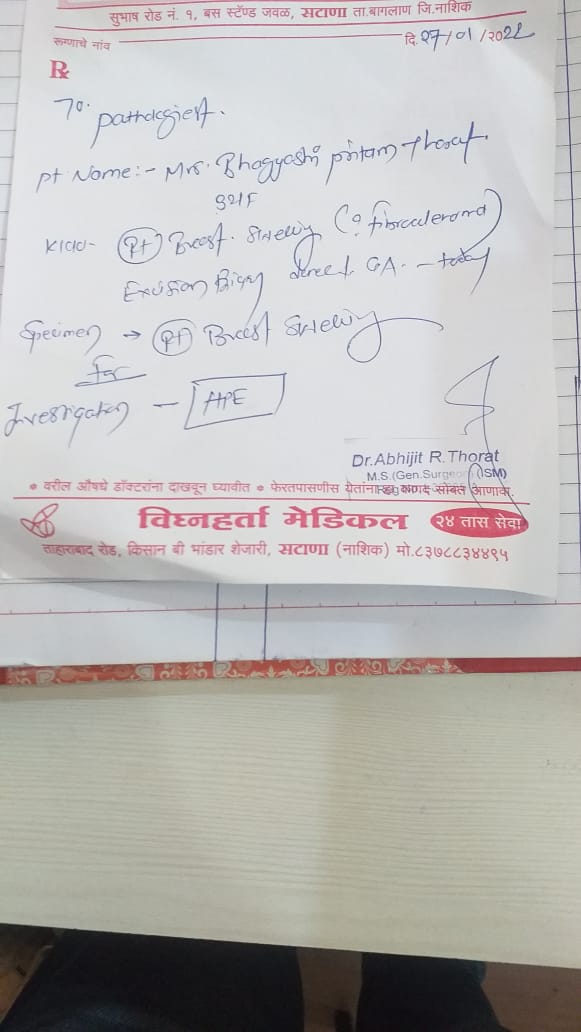 सुभाष रोड नं. १, बस स्टॅण्ड जवळ, सटाणा ता.बागलाण जि.नाशिक
रुग्णाचे नांव दि. 27/01/२०22
Rx
To.
pathologist.
pt Name:- Mrs. Bhagyashri pritam Thorat.
32/F
K/c/o- (Rt) Breast swelling (? fibroadenoma)
Excision Biopsy under GA. - today
Specimen → (Rt) Breast swelling
for
Investigation - HPE
Dr.Abhijit R.Thorat
M.S.(Gen.Surgeon) (ISM)
● वरील औषधे डॉक्टरांना दाखवून घ्यावीत ● फेरतपासणीस येतांना हा कागद सोबत आणावा.
विघ्नहर्ता मेडिकल २४ तास सेवा
ताहाराबाद रोड, किसान बी भांडार शेजारी, सटाणा (नाशिक) मो.८३७८८३४४९५